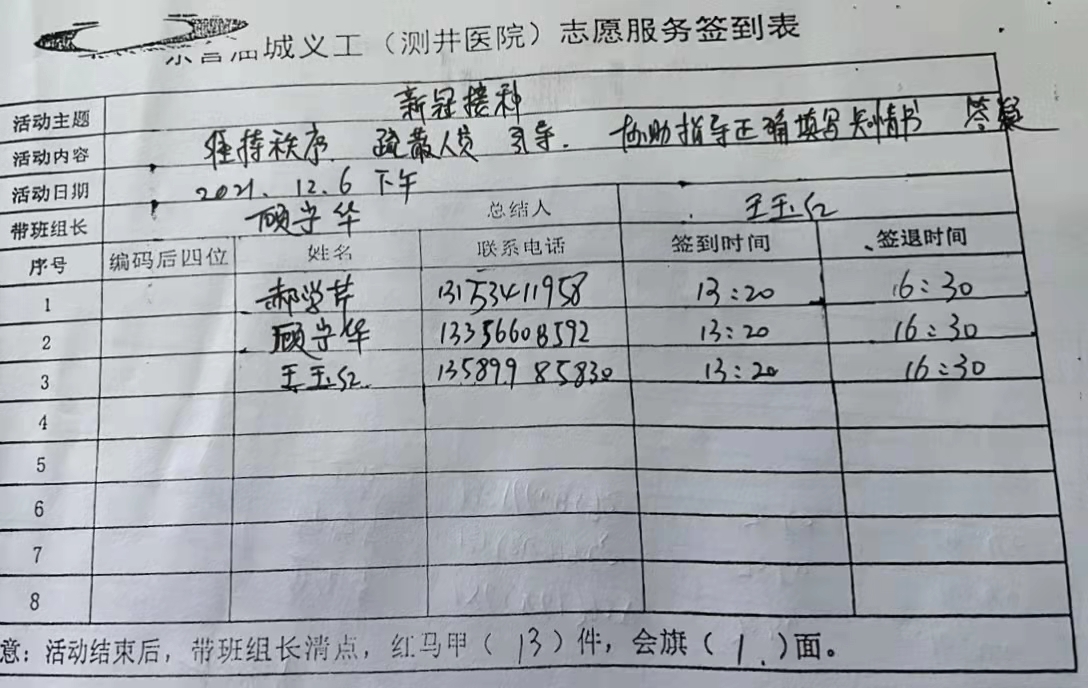 东营油城义工（测井医院）志愿服务签到表
活动主题 新冠接种
活动内容 维持秩序 疏散人员 引导. 协助指导正确填写知情书 答疑
活动日期 2021.12.6 下午
带班组长 顾守华 总结人 王玉红
序号 编码后四位 姓名 联系电话 签到时间 签退时间
1 郝学芹 13153411958 13:20 16:30
2 顾守华 13356608592 13:20 16:30
3 王玉红 13589985830 13:20 16:30
4
5
6
7
8
意：活动结束后，带班组长清点，红马甲（13）件，会旗（1.）面。